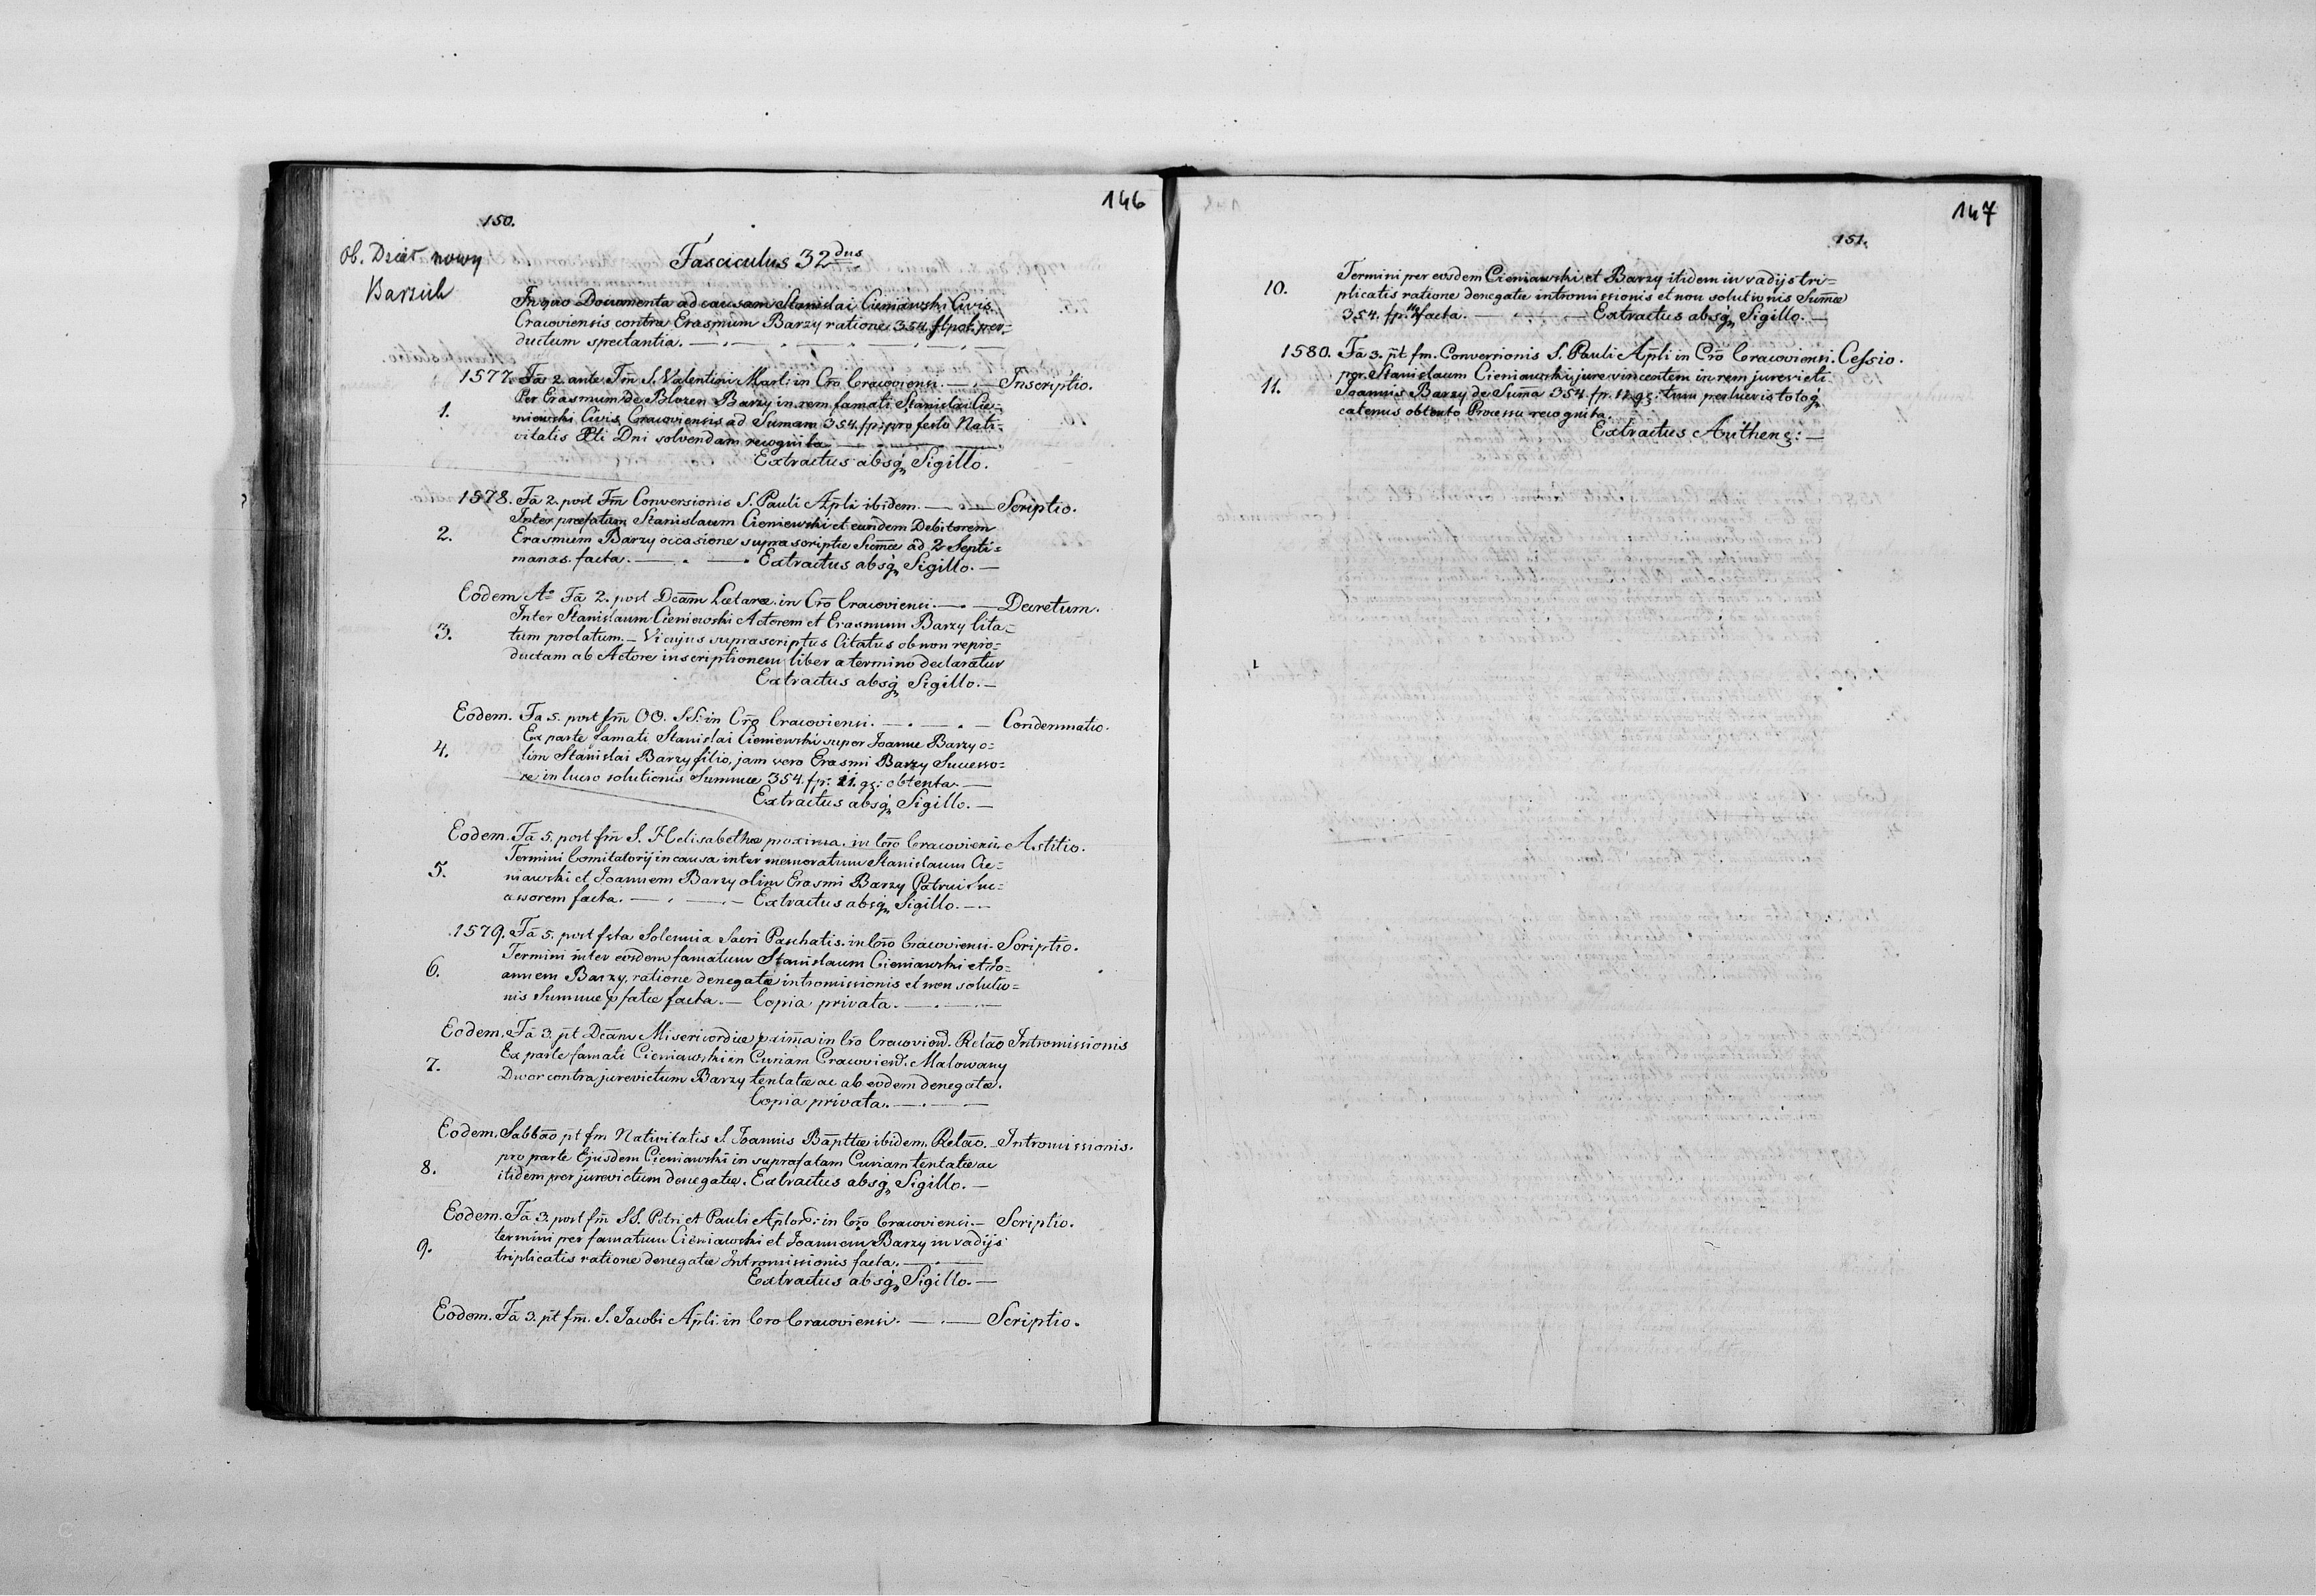 146
150.
Ob. Dział nowy
Barzich
Fasciculus 32dus
In quo Documenta ad causam Stanislai Cieniawski Civis
Cracoviensis contra Erasmum Barzy ratione 354 flpol. per=
ductum spectantia.
1577. Fa 2. ante Fm S. Valentini Marti in Cro Cracoviensi. — Inscriptio.
Per Erasmum de Blozen Barzy in rem famati Stanislai Cie=
1. niewski Civis Cracoviensis ad Sumam 354. fp. pro festo Nati=
vitatis Xti Dni solvendam recognita
Extractus absq Sigillo.
1578. Fa 2. post Fm Conversionis S. Pauli Apli ibidem. — Scriptio.
Inter præfatum Stanislaum Cieniewski et eundem Debitorem
2. Erasmum Barzy occasione suprascriptæ Sumæ ad 2 Septi=
manas facta. — Extractus absq Sigillo. —
Eodem Ao Fa 2. post Dcam Lætare in Cro Cracoviensi. — Decretum.
Inter Stanislaum Cieniewski Actorem et Erasmum Barzy Cita=
3. tum prolatum. — Vi cujus suprascriptus Citatus ob non repro=
ductam ab Actore inscriptionem liber a termino declaratur
Extractus absq Sigillo. —
Eodem. Fa 5. post fm OO. SS. in Cro Cracoviensi. — Condemnatio.
Ex parte famati Stanislai Cieniewski super Joanne Barzy o=
4. lim Stanislai Barzy filio, jam vero Erasmi Barzy Successo=
re in lucro solutionis Summæ 354. fp. 11. gs: obtenta. —
Extractus absq Sigillo. —
Eodem. Fa 5. post fm S. Helisabethæ proxima. in Cro Cracoviensi. Astitio.
Termini Comitatorij in causa inter memoratum Stanislaum Cie=
5. niawski et Joannem Barzy olim Erasmi Barzy Patrui Suc=
cessorem facta. — Extractus absq Sigillo. —
1579. Fa 5. post festa Solemnia Sacri Paschatis. in Cro Cracoviensi. Scriptio.
Termini inter eosdem famatum Stanislaum Cieniawski et Jo=
6. annem Barzy, ratione denegatæ intromissionis et non solutio=
nis Summæ pfatæ facta. — Copia privata. —
Eodem. Fa 3. pt Dcam Misericordiæ prima in Cro Cracovien. Relao Intromissionis
Ex parte famati Cieniawski in Curiam Cracovien. Malowany
7. Dwor contra jurevictum Barzy tentatæ ac ab eodem denegatæ.
Copia privata. —
Eodem. Sabbao pt fm Nativitatis S. Joannis Bapttæ ibidem. Relao. Intromissionis.
pro parte Ejusdem Cieniawski in suprafatam Curiam tentatæ ac
8. itidem per jurevictum denegatæ. Extractus absq Sigillo. —
Eodem. Fa 3. post fm SS. Petri et Pauli Aplor: in Cro Cracoviensi. — Scriptio.
termini per famatum Cieniawski et Joannem Barzy in vadijs
9. triplicatis ratione denegatæ Intromissionis facta. —
Extractus absq Sigillo. —
Eodem. Fa 3. pt fm. S. Jacobi Apli. in Cro Cracoviensi. — Scriptio.
147
151.
Termini per eosdem Cieniawski et Barzy itidem in vadijs tri=
10. plicatis ratione denegatæ intromissionis et non solutionis Sumæ
354. fp. facta. — Extractus absq Sigillo. —
1580. Fa 3. pt fm. Conversionis S. Pauli Apli in Cro Cracoviensi. Cessio.
per Stanislaum Cieniawski jurevincentem in rem jurevicti
11. Joannis Barzy de Suma 354. fp. 11. gs: tum perlucris totoq
eatenus obtento Processu recognita.
Extractus Authens: —